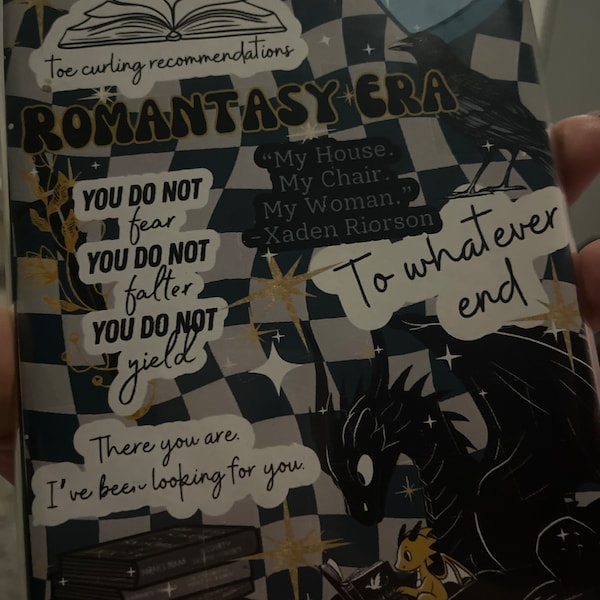 toe curling recommendations
ROMANTASY ERA
YOU DO NOT
fear
YOU DO NOT
falter
YOU DO NOT
yield
"My House.
My Chair.
My Woman."
-Xaden Riorson
To whatever
end
There you are.
I've been looking for you.